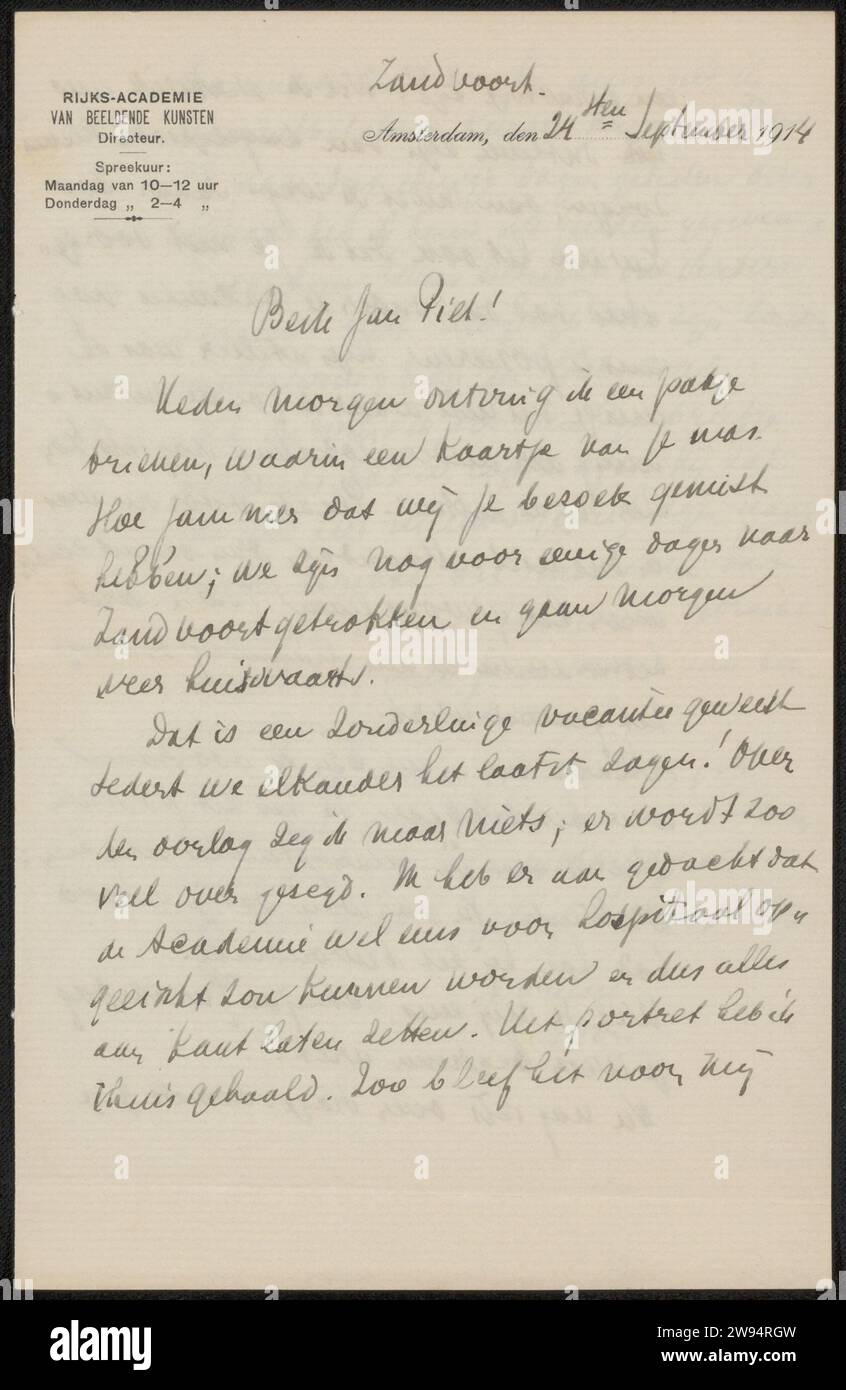 RIJKS-ACADEMIE
VAN BEELDENDE KUNSTEN
Directeur.
Spreekuur:
Maandag van 10—12 uur
Donderdag „ 2—4 „
Zandvoort.
Amsterdam, den 24sten September 1914
Beste Jan Piet!
Heden morgen ontving ik een pakje
brieven, waarin een kaartje van je was.
Hoe jammer dat wij je bezoek gemist
hebben; we zijn nog voor eenige dagen naar
Zandvoort getrokken en gaan morgen
weer huiswaarts.
Dat is een zonderlinge vacantie geweest
sedert we elkander het laatst zagen! Over
den oorlog zeg ik maar niets; er wordt zoo
veel over gezegd. Ik heb er aan gedacht dat
de Academie wel eens voor hospitaal op
geëischt zou kunnen worden en dus alles
aan kant laten zetten. Het portret heb ik
thuis gehaald. Zoo bleef het voor mij
alamy
Image ID: 2W94RGW
www.alamy.com